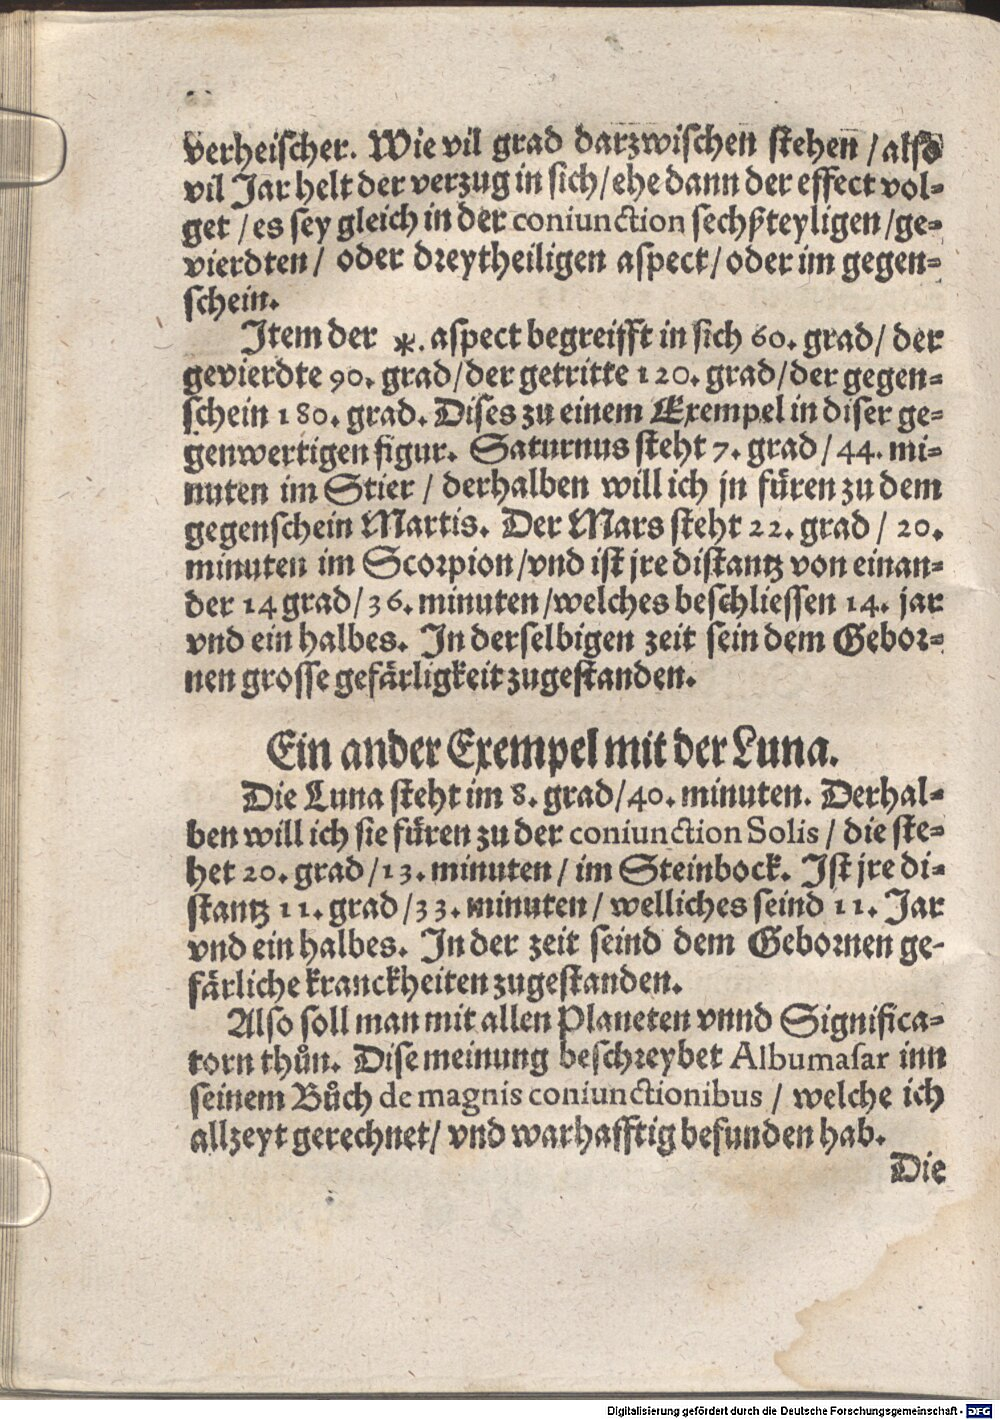 verheiſcher. Wie vil grad darzwiſchen ſtehen / alſo
vil Jar helt der verzug in ſich / ehe dann der effect vol⸗
get / es ſey gleich in der coniunction ſechßteyligen / ge⸗
vierdten / oder dreytheiligen aſpect / oder im gegen⸗
ſchein.
Item der ⚹. aſpect begreifft in ſich 60. grad / der
gevierdte 90. grad / der getritte 120. grad / der gegen⸗
ſchein 180. grad. Diſes zu einem Exempel in diſer ge⸗
genwertigen figur. Saturnus ſteht 7. grad / 44. mi⸗
nuten im Stier / derhalben will ich jn fuͤren zu dem
gegenſchein Martis. Der Mars ſteht 22. grad / 20.
minuten im Scorpion / vnd iſt jre diſtantz von einan⸗
der 14 grad / 36. minuten / welches beſchlieſſen 14. jar
vnd ein halbes. In derſelbigen zeit ſein dem Gebor⸗
nen groſſe gefaͤrligkeit zugeſtanden.
Ein ander Exempel mit der Luna.
Die Luna ſteht im 8. grad / 40. minuten. Derhal⸗
ben will ich ſie fuͤren zu der coniunction Solis / die ſte⸗
het 20. grad / 13. minuten / im Steinbock. Iſt jre di⸗
ſtantz 11. grad / 33. minuten / welliches ſeind 11. Jar
vnd ein halbes. In der zeit ſeind dem Gebornen ge⸗
faͤrliche kranckheiten zugeſtanden.
Alſo ſoll man mit allen Planeten vnnd Significa⸗
torn thuͦn. Diſe meinung beſchreybet Albumaſar inn
ſeinem Buͦch de magnis coniunctionibus / welche ich
allzeyt gerechnet / vnd warhafftig befunden hab.
Die
Digitalisierung gefördert durch die Deutsche Forschungsgemeinschaft - DFG